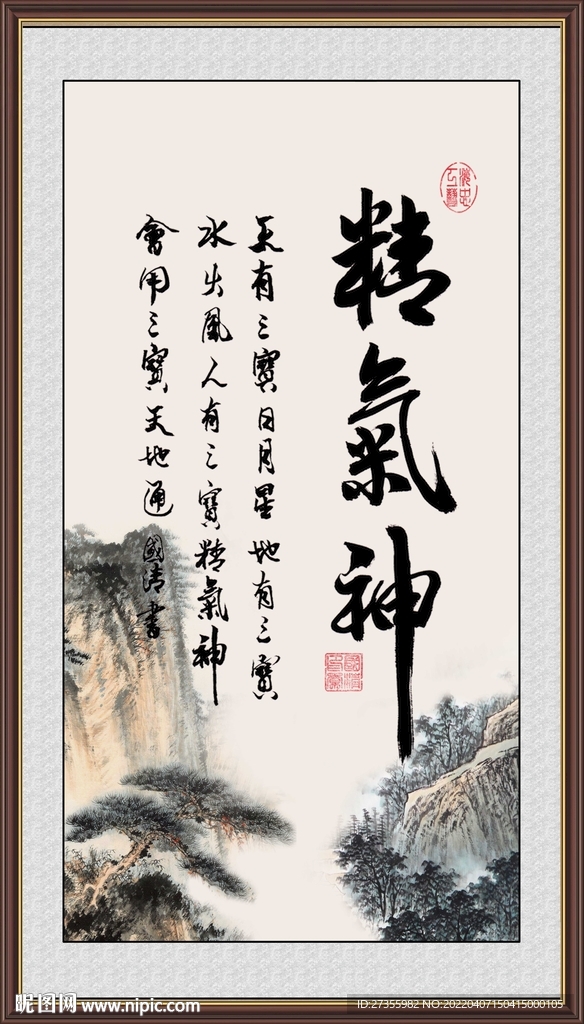 精氣神
天有三寶日月星地有三寶
水火風人有三寶精氣神
會用三寶天地通 國清書
昵图网 www.nipic.com
ID:27355982 NO:20220407150415000105